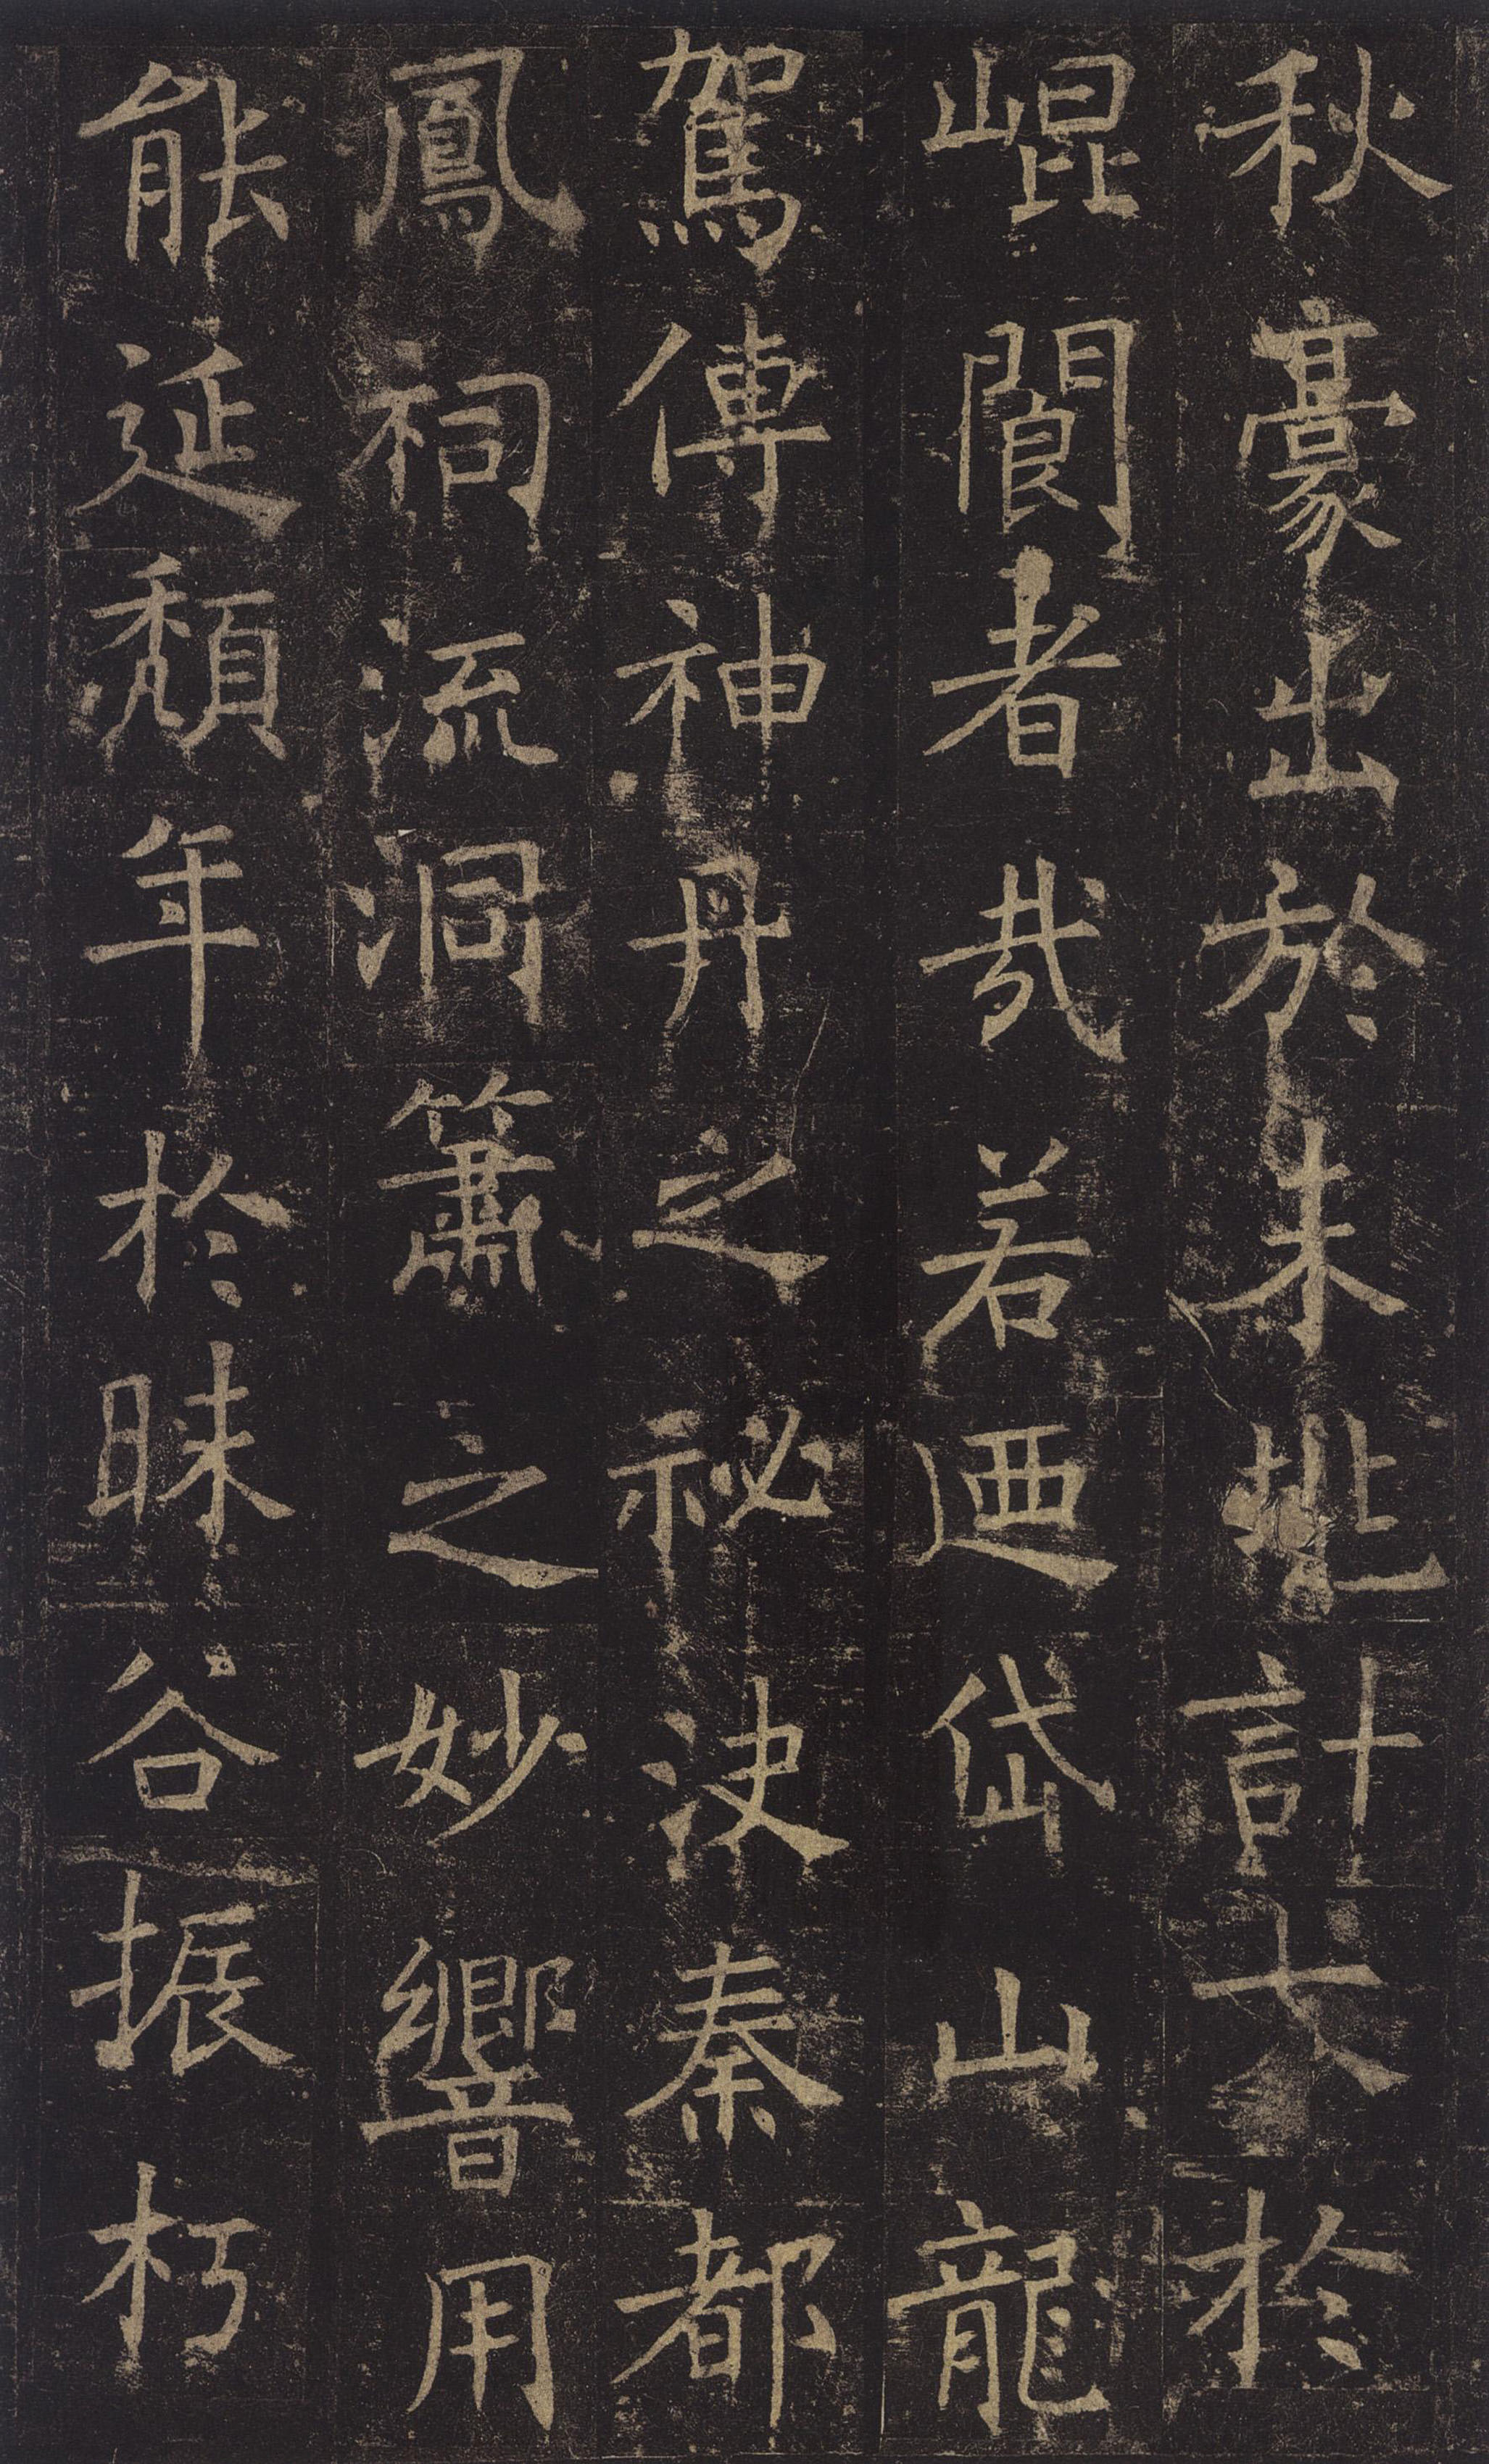 秋豪出於朱北計大於
崐閬者哉若迺岱山龍
駕傳神丹之祕決秦都
鳳祠流洞簫之妙響用
能延頹年於昧谷振朽